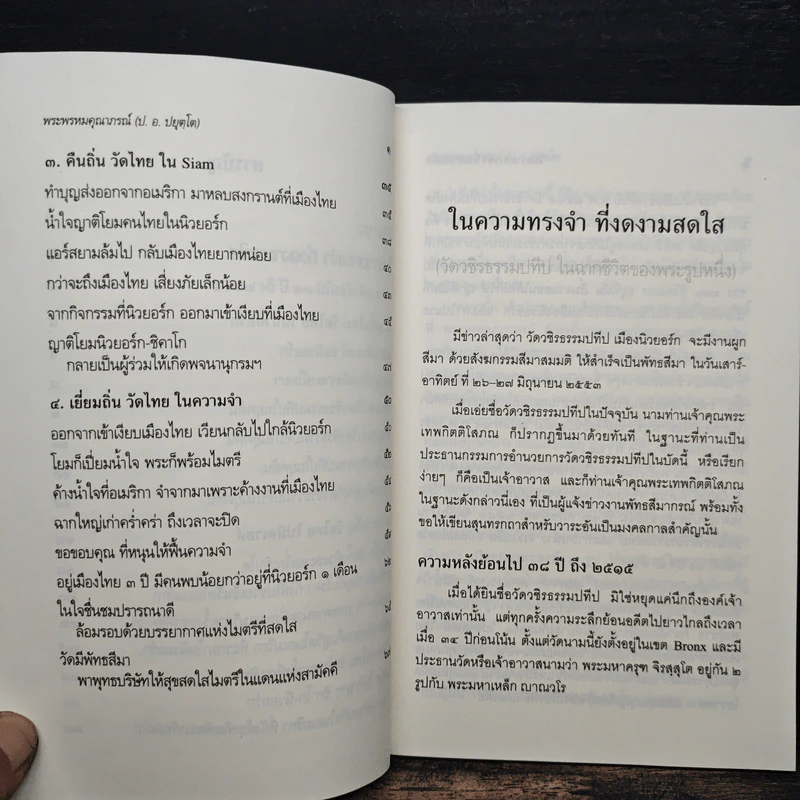 พระพรหมคุณาภรณ์ (ป. อ. ปยุตฺโต)
๓. คืนถิ่น วัดไทย ใน Siam
ทำบุญส่งออกจากอเมริกา มาหลบสงกรานต์ที่เมืองไทย ๓๕
น้ำใจญาติโยมคนไทยในนิวยอร์ก ๓๕
แอร์สยามล้มไป กลับเมืองไทยยากหน่อย ๓๘
กว่าจะถึงเมืองไทย เสี่ยงภัยเล็กน้อย ๔๐
จากกิจกรรมที่นิวยอร์ก ออกมาเข้าเงียบที่เมืองไทย ๔๓
ญาติโยมนิวยอร์ก-ชิคาโก ๔๕
กลายเป็นผู้ร่วมให้เกิดพจนานุกรมฯ ๔๗
๔. เยี่ยมถิ่น วัดไทย ในความจำ ๕๐
ออกจากเข้าเงียบเมืองไทย เวียนกลับไปใกล้นิวยอร์ก
โยมก็เปี่ยมน้ำใจ พระก็พร้อมไมตรี
ค้างน้ำใจที่อเมริกา จำจากมาเพราะค้างงานที่เมืองไทย
ฉากใหญ่เก่าคร่ำคร่า ถึงเวลาจะปิด
ขอขอบคุณ ที่หนุนให้ฟื้นความจำ
อยู่เมืองไทย ๓ ปี มีคนพบน้อยกว่าอยู่ที่นิวยอร์ก ๑ เดือน
ในใจชื่นชมปรารถนาดี
ล้อมรอบด้วยบรรยากาศแห่งไมตรีที่สดใส
วัดมีพัทธสีมา
พาพุทธบริษัทให้สุขสดใสไมตรีในแดนแห่งสามัคคี
ในความทรงจำ ที่งดงามสดใส
(วัดวชิรธรรมปทีป ในฉากชีวิตของพระรูปหนึ่ง)
มีข่าวล่าสุดว่า วัดวชิรธรรมปทีป เมืองนิวยอร์ก จะมีงานผูก
สีมา ด้วยสังฆกรรมสีมาสมมติ ให้สำเร็จเป็นพัทธสีมา ในวันเสาร์-
อาทิตย์ ที่ ๒๖-๒๗ มิถุนายน ๒๕๕๓
เมื่อเอ่ยชื่อวัดวชิรธรรมปทีปในปัจจุบัน นามท่านเจ้าคุณพระ
เทพกิตติโสภณ ก็ปรากฏขึ้นมาด้วยทันที ในฐานะที่ท่านเป็น
ประธานกรรมการอำนวยการวัดวชิรธรรมปทีปในบัดนี้ หรือเรียก
ง่ายๆ ก็คือเป็นเจ้าอาวาส และก็ท่านเจ้าคุณพระเทพกิตติโสภณ
ในฐานะดังกล่าวนี้เอง ที่เป็นผู้แจ้งข่าวงานพัทธสีมากรณ์ พร้อมทั้ง
ขอให้เขียนสุนทรกถาสำหรับวาระอันเป็นมงคลกาลสำคัญนั้น
ความหลังย้อนไป ๓๘ ปี ถึง ๒๕๑๕
เมื่อได้ยินชื่อวัดวชิรธรรมปทีป มิใช่หยุดแค่นึกถึงองค์เจ้า
อาวาสเท่านั้น แต่ทุกครั้งความระลึกย้อนอดีตไปยาวไกลถึงเวลา
เมื่อ ๓๔ ปีก่อนโน้น ตั้งแต่วัดนามนี้ยังตั้งอยู่ในเขต Bronx และมี
ประธานวัดหรือเจ้าอาวาสนามว่า พระมหาครุฑ จิรสุสุโต อยู่กัน ๒
รูปกับ พระมหาเหล็ก ญาณวโร